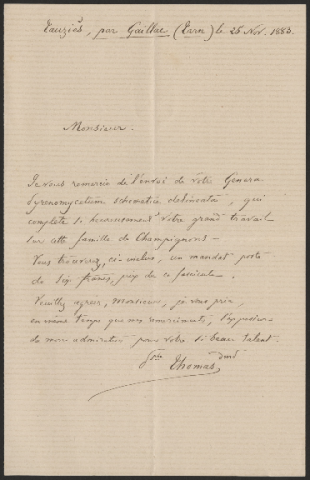 Tauziès, par Gaillac (Tarn) le 25 Nov. 1883.
Monsieur.
Je vous remercie de l'envoi de votre Genera
Pyrenomycetum schematice delineata, qui
complète si heureusement votre grand travail
sur cette famille de Champignons.
Vous trouverez, ci-inclus, un mandat poste
de dix francs, prix de ce fascicule.
Veuillez agréer, Monsieur, je vous prie,
en même temps que mes remerciments, l'expression
de mon admiration pour votre si beau talent.
Thomas